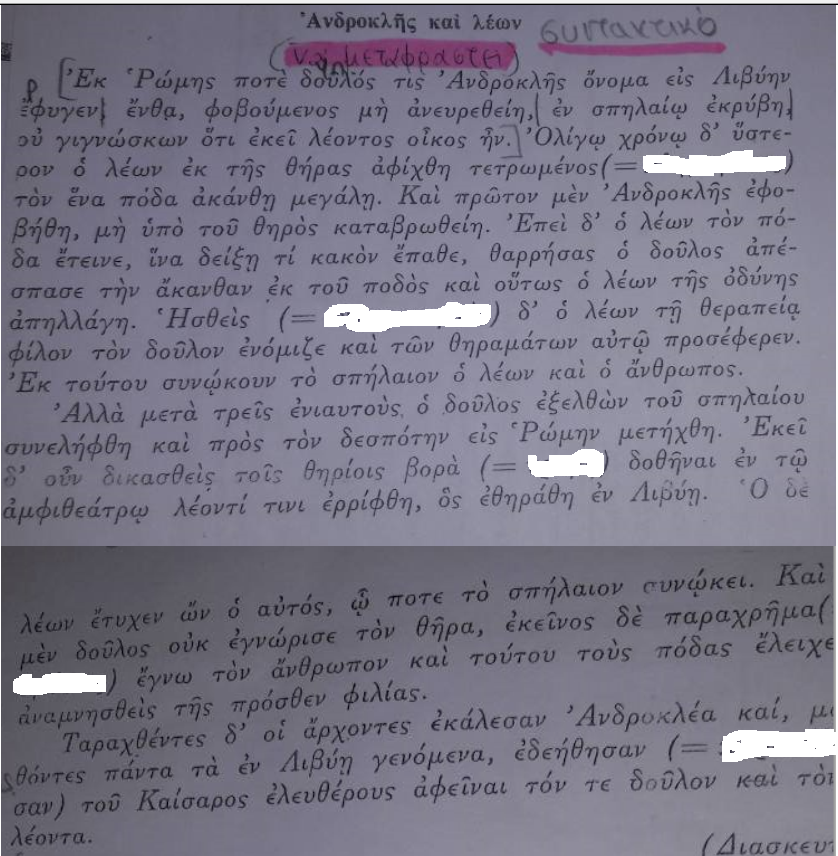 Ἀνδροκλῆς καὶ λέων
συντακτικό
Ἐκ Ῥώμης ποτὲ δοῦλός τις Ἀνδροκλῆς ὄνομα εἰς Λιβύην
ἔφυγεν ἔνθα, φοβούμενος μὴ ἀνευρεθείη, ἐν σπηλαίῳ ἐκρύβη,
οὐ γιγνώσκων ὅτι ἐκεῖ λέοντος οἶκος ἦν. Ὀλίγῳ χρόνῳ δ' ὕστε-
ρον ὁ λέων ἐκ τῆς θήρας ἀφίχθη τετρωμένος (= )
τὸν ἕνα πόδα ἀκάνθῃ μεγάλῃ. Καὶ πρῶτον μὲν Ἀνδροκλῆς ἐφο-
βήθη, μὴ ὑπὸ τοῦ θηρὸς καταβρωθείη. Ἐπεὶ δ' ὁ λέων τὸν πό-
δα ἔτεινε, ἵνα δείξῃ τί κακὸν ἔπαθε, θαρρήσας ὁ δοῦλος ἀπέ-
σπασε τὴν ἄκανθαν ἐκ τοῦ ποδὸς καὶ οὕτως ὁ λέων τῆς ὀδύνης
ἀπηλλάγη. Ἡσθεὶς (= ) δ' ὁ λέων τῇ θεραπείᾳ
φίλον τὸν δοῦλον ἐνόμιζε καὶ τῶν θηραμάτων αὐτῷ προσέφερεν.
Ἐκ τούτου συνῴκουν τὸ σπήλαιον ὁ λέων καὶ ὁ ἄνθρωπος.
Ἀλλὰ μετὰ τρεῖς ἐνιαυτούς, ὁ δοῦλος ἐξελθὼν τοῦ σπηλαίου
συνελήφθη καὶ πρὸς τὸν δεσπότην εἰς Ῥώμην μετήχθη. Ἐκεῖ
δ' οὖν δικασθεὶς τοῖς θηρίοις βορὰ (= ) δοθῆναι ἐν τῷ
ἀμφιθεάτρῳ λέοντί τινι ἐρρίφθη, ὃς ἐθηράθη ἐν Λιβύῃ. Ὁ δὲ
λέων ἔτυχεν ὢν ὁ αὐτός, ᾧ ποτε τὸ σπήλαιον συνῴκει. Καὶ
μὲν δοῦλος οὐκ ἐγνώρισε τὸν θῆρα, ἐκεῖνος δὲ παραχρῆμα(
) ἔγνω τὸν ἄνθρωπον καὶ τούτου τοὺς πόδας ἔλειχε
ἀναμνησθεὶς τῆς πρόσθεν φιλίας.
Ταραχθέντες δ' οἱ ἄρχοντες ἐκάλεσαν Ἀνδροκλέα καί, μα
θόντες πάντα τὰ ἐν Λιβύῃ γενόμενα, ἐδεήθησαν (=
σαν) τοῦ Καίσαρος ἐλευθέρους ἀφεῖναι τόν τε δοῦλον καὶ τὸ
λέοντα.
(Διασκευ